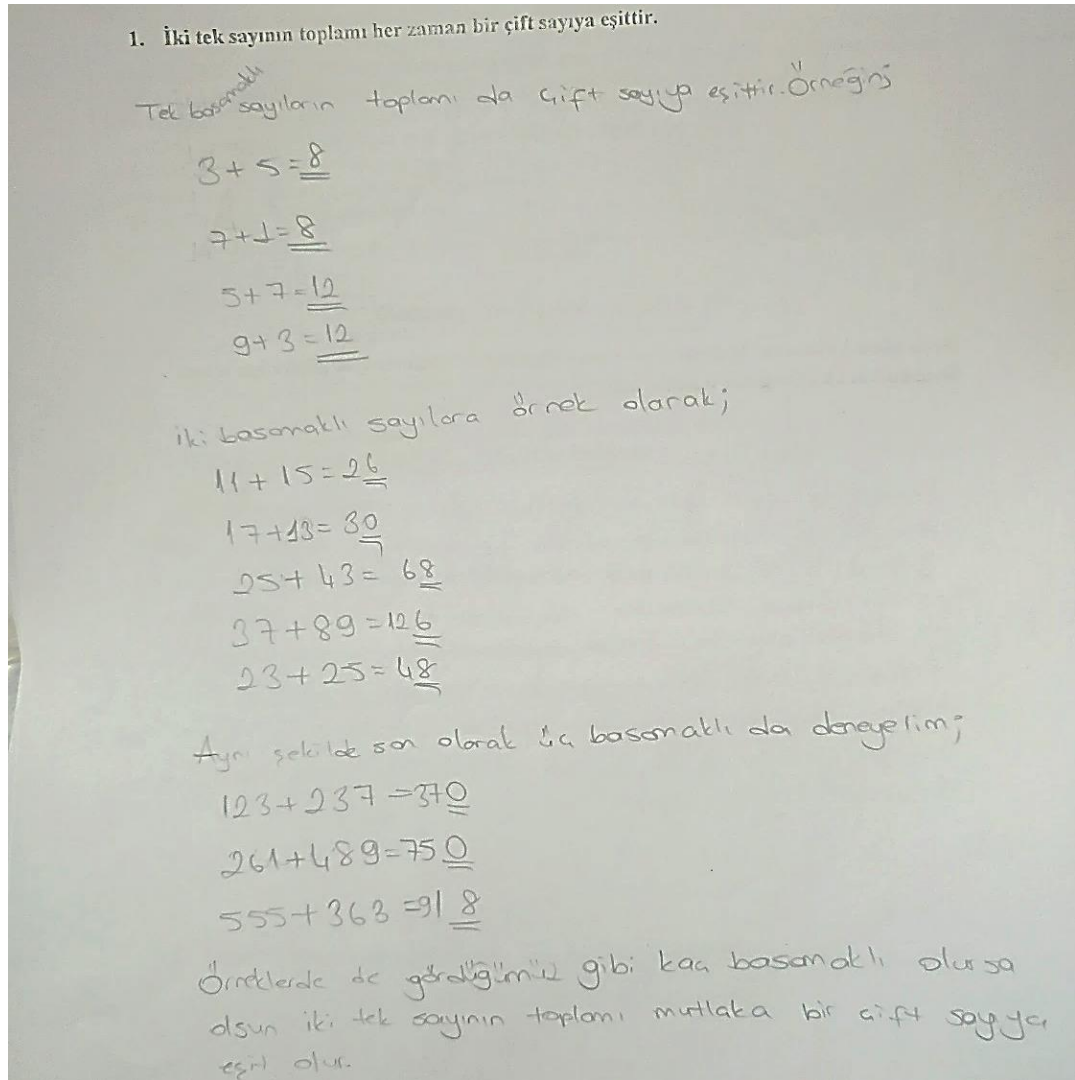 1. İki tek sayının toplamı her zaman bir çift sayıya eşittir.
Tek basamaklı sayıların toplamı da çift sayıya eşittir. Örneğin;
3 + 5 = 8
7 + 1 = 8
5 + 7 = 12
9 + 3 = 12
İki basamaklı sayılara örnek olarak;
11 + 15 = 26
17 + 13 = 30
25 + 43 = 68
37 + 89 = 126
23 + 25 = 48
Aynı şekilde son olarak üç basamaklı da deneyelim;
123 + 237 = 370
261 + 489 = 750
555 + 363 = 918
Örneklerde de gördüğümüz gibi kaç basamaklı olursa
olsun iki tek sayının toplamı mutlaka bir çift sayıya
eşit olur.